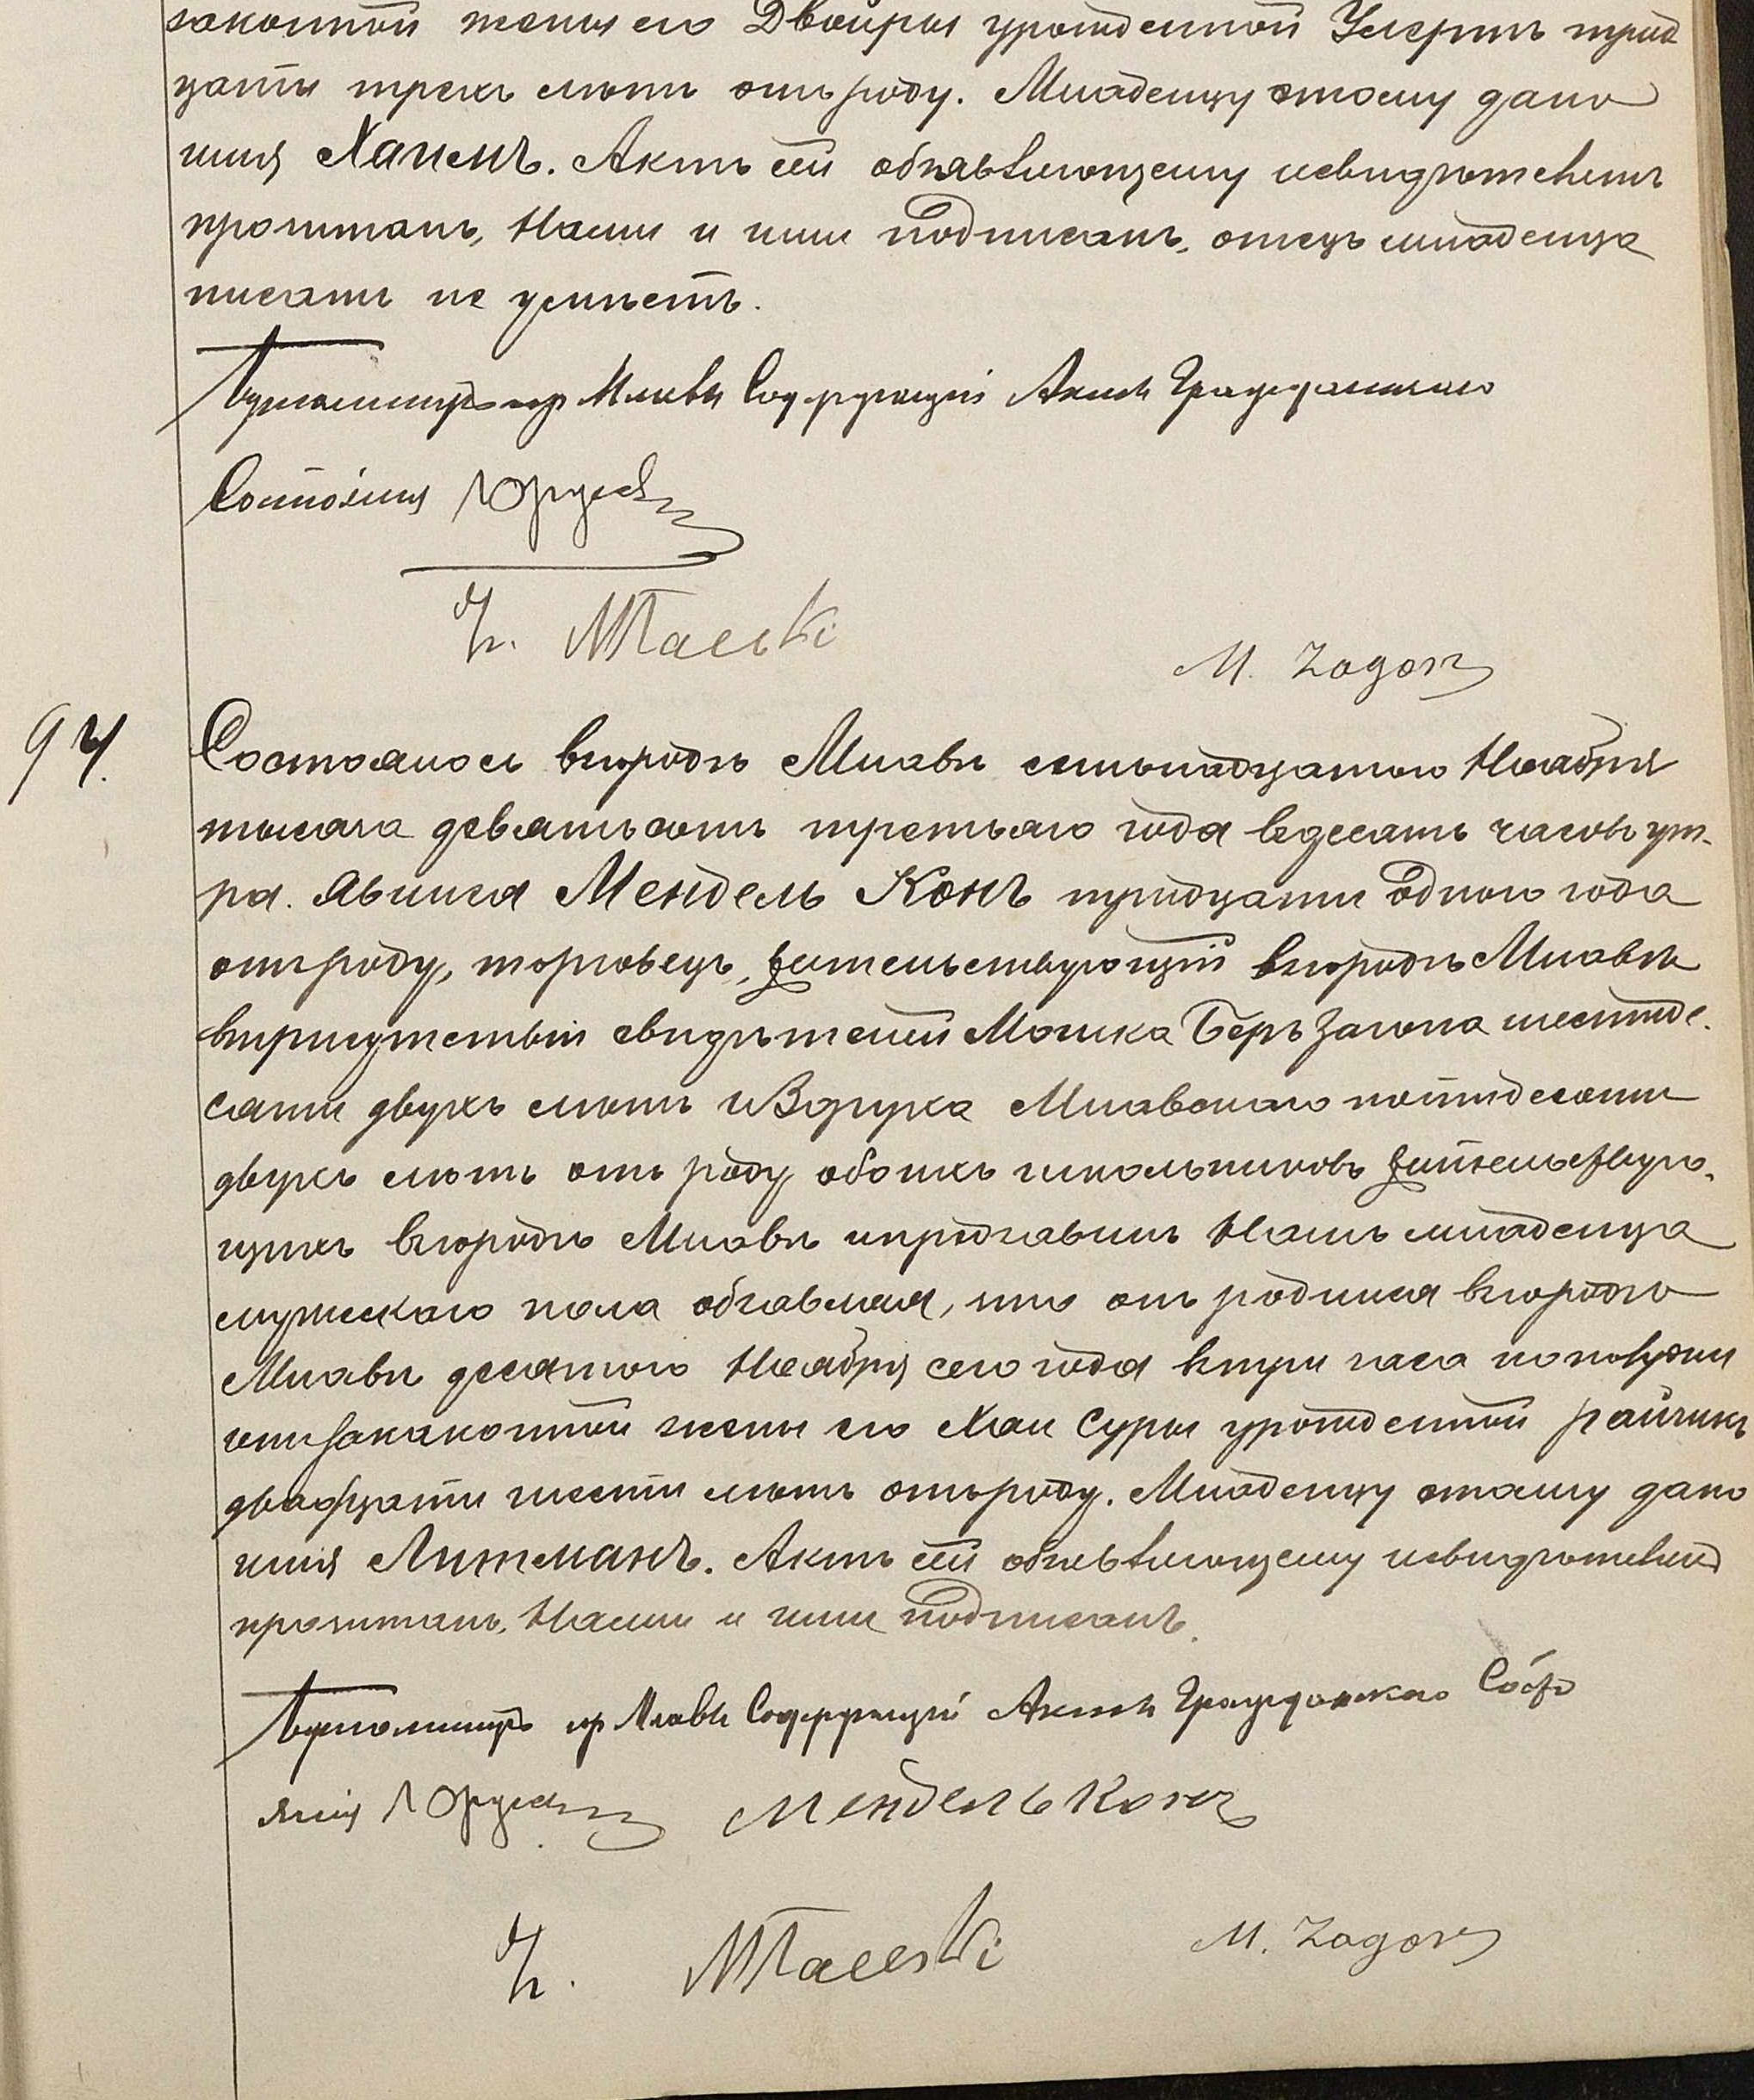 законной жены его Двойры урожденной Умертъ трид
цати трехъ лѣтъ отъ роду. Младенцу этому дано
имя Хаимъ. Актъ сей объявляющему и свидѣтелямъ
прочитанъ, Нами и ими подписанъ, отецъ младенца
писать не умѣетъ.
гор Млавы Содержащій Акты Гражданскаго
Состоянія
M. Zagon
94.
Состоялось въ городѣ Млавѣ семьнадцатаго Ноября
тысяча девятьсотъ третьяго года въ десять часовъ ут-
ра. Явился Мендель Конъ тридцати одного года
отъ роду, торговецъ, жительствующій въ городѣ Млавѣ
въ присутствіи свидѣтелей Мошка Беръ Загона шестиде-
сяти двухъ лѣтъ и Млавскаго пятидесяти
двухъ лѣтъ отъ роду обоихъ школьниковъ жительствую-
щихъ въ городѣ Млавѣ и предъявилъ Намъ младенца
мужескаго пола объявляя, что онъ родился въ городѣ
Млавѣ десятого Ноября сего года въ три часа по полудни
отъ законной жены его Хаи Суры урожденной Райчикъ
двадцати шести лѣтъ отъ роду. Младенцу этому дано
имя Литманъ. Актъ сей объявляющему и свидѣтелямъ
прочитанъ, Нами и ими подписанъ.
гор Млавы Содержащій Акты Гражданскаго Состо
янія Мендель Конъ
M. Zagon